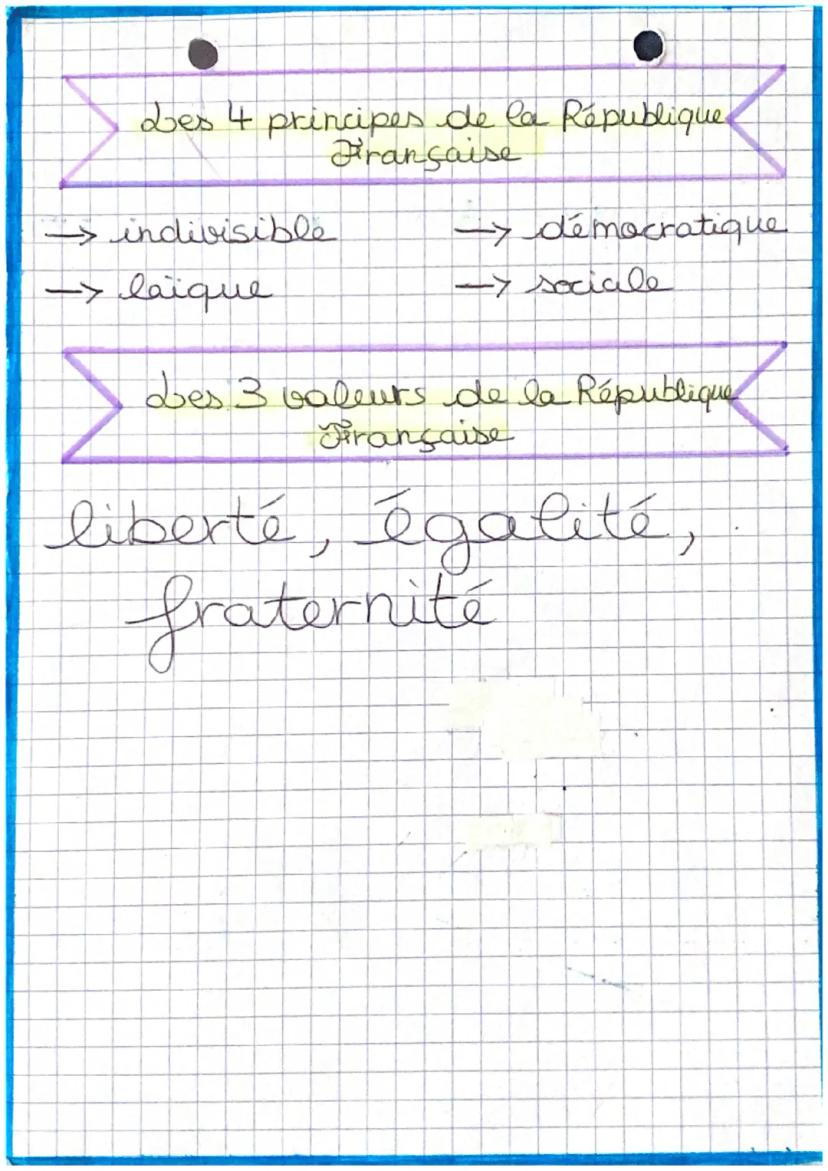 Les 4 principes de la République
Française
→ indivisible → démocratique
→ laïque → sociale
Les 3 valeurs de la République
Française
liberté, égalité,
fraternité